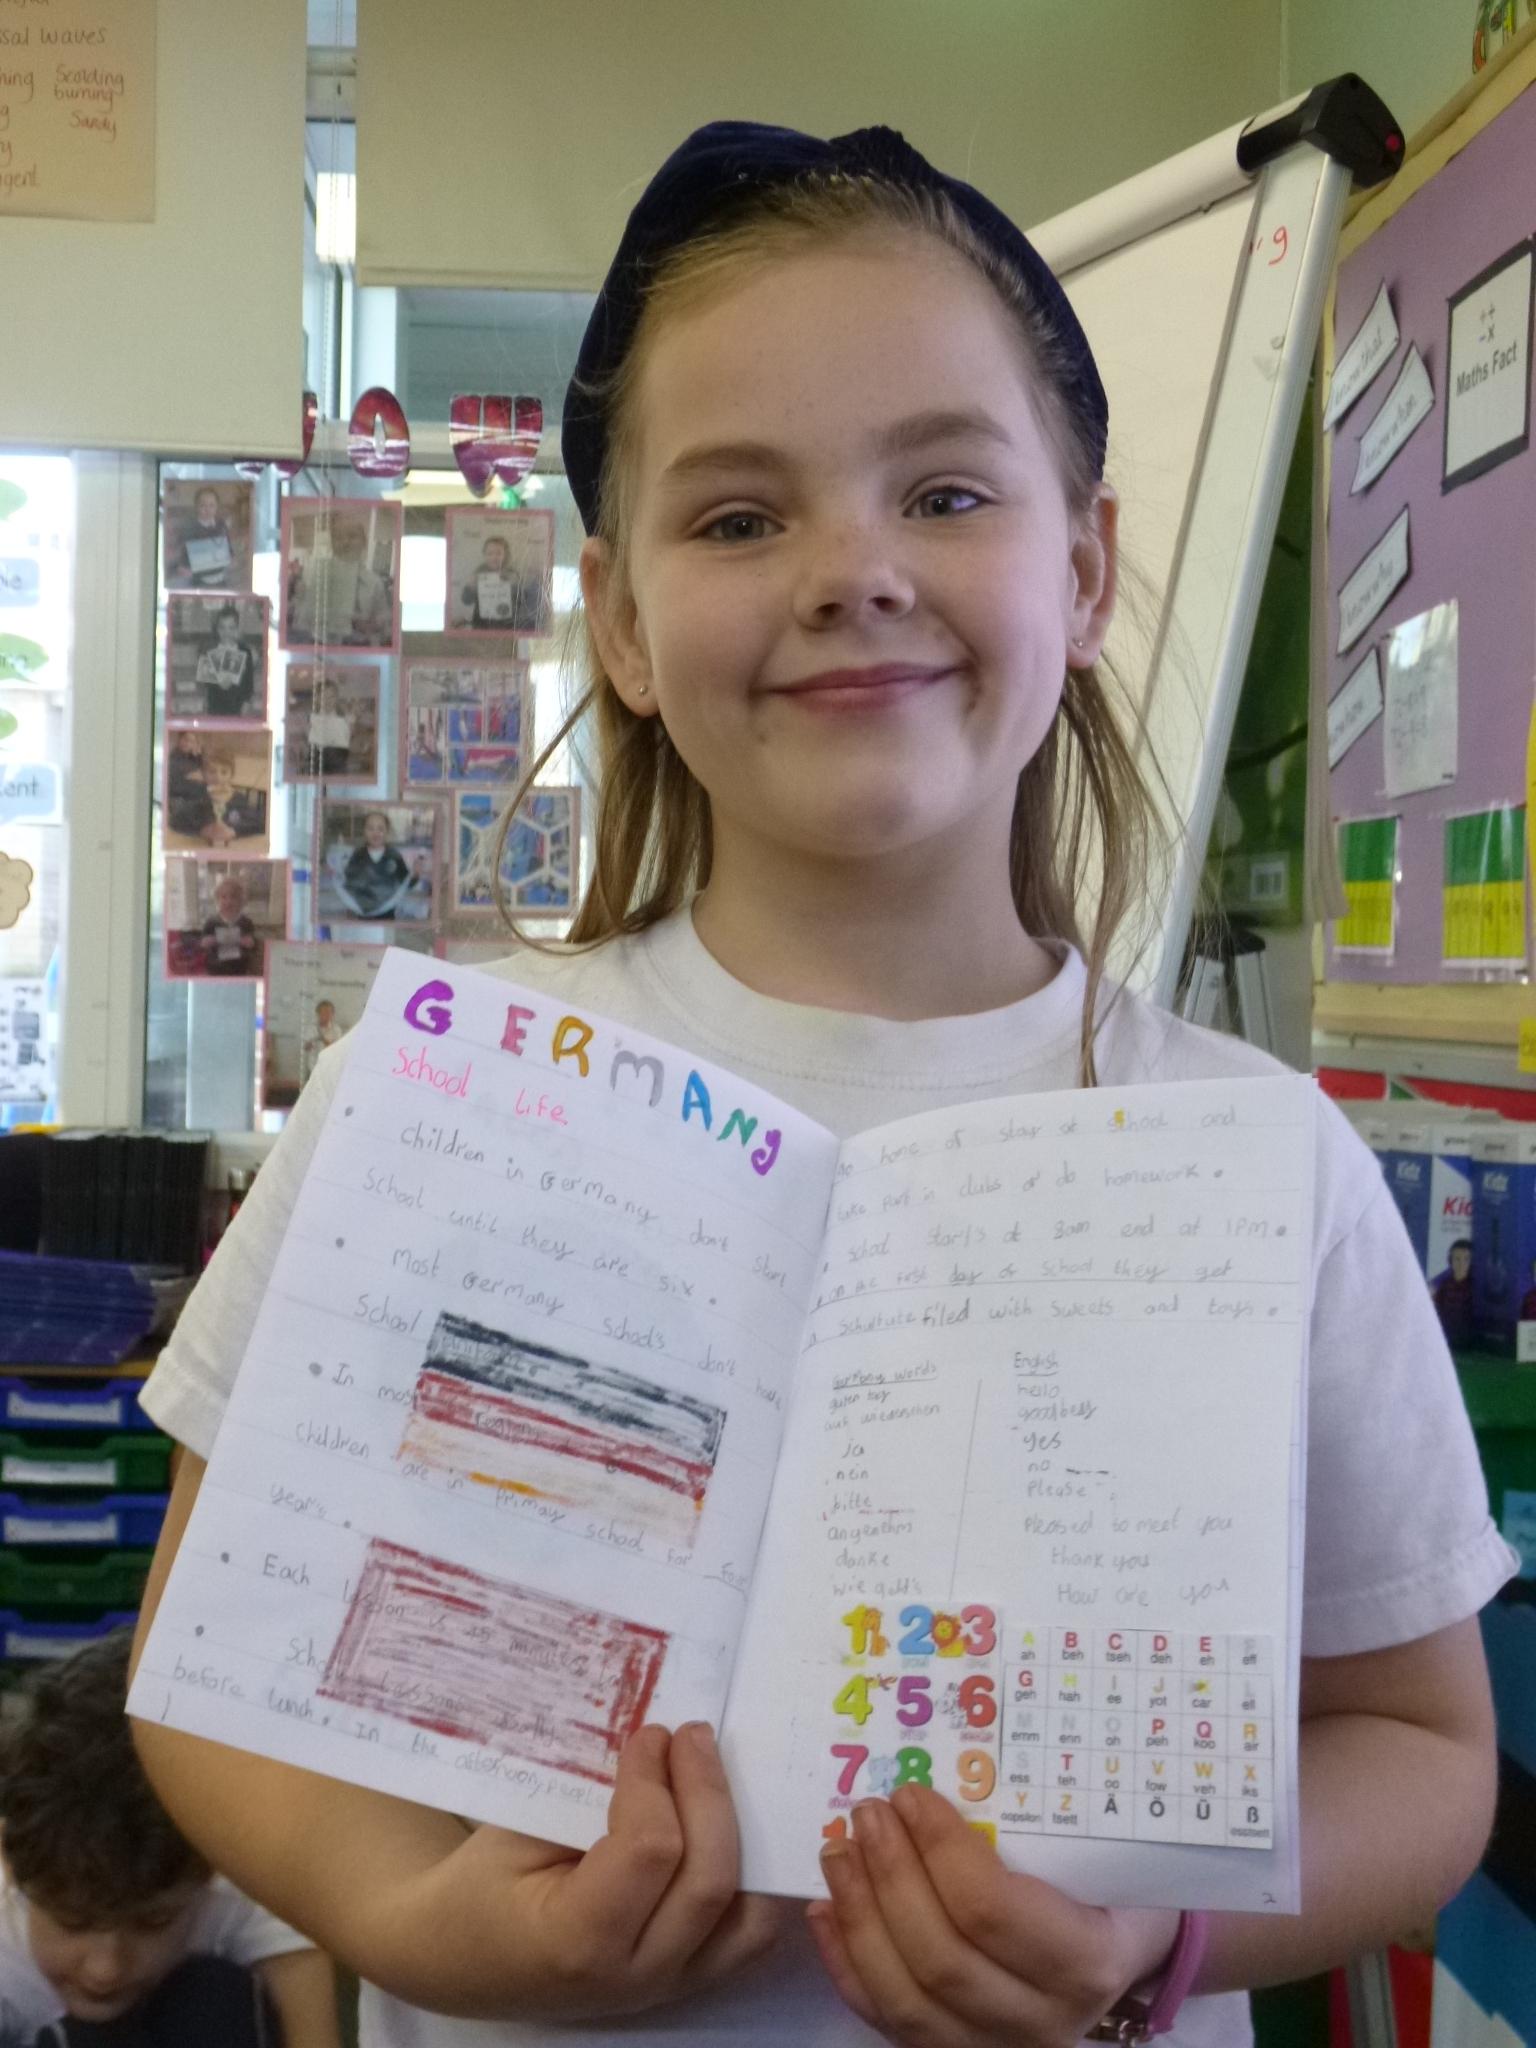 ssal waves
Scolding
burning
Sandy
gent
Maths Fact
GERMANY
School life
• children in Germany don't start
School until they are six.
• Most Germany school's don't have
School uniform.
• In most regions
children are in Primay school for four
year's.
• Each lesson is 45 minutes
• School lessons usually
before lunch. In the afternoon, people
1
go home of stay at school and
take part in clubs or do homework.
• school start's at 8am end at 1PM.
• on the first day of school they get
a schultute filled with sweets and toys.
Germany words
guten tag
auf wiedersehen
ja
nein
bitte
angenehm
danke
wie geht's
English
hello
yes
no
Please
Pleased to meet you
thank you
How are you
1 2 3
4 5 6
7 8 9
A B C D E F
ah beh tseh deh eh eff
G H I J K L
geh hah ee yot car ell
M N O P Q R
emm enn oh peh koo air
S T U V W X
ess teh oo fow veh iks
Y Z Ä Ö Ü ß
oopsilon tsett esstsett
2